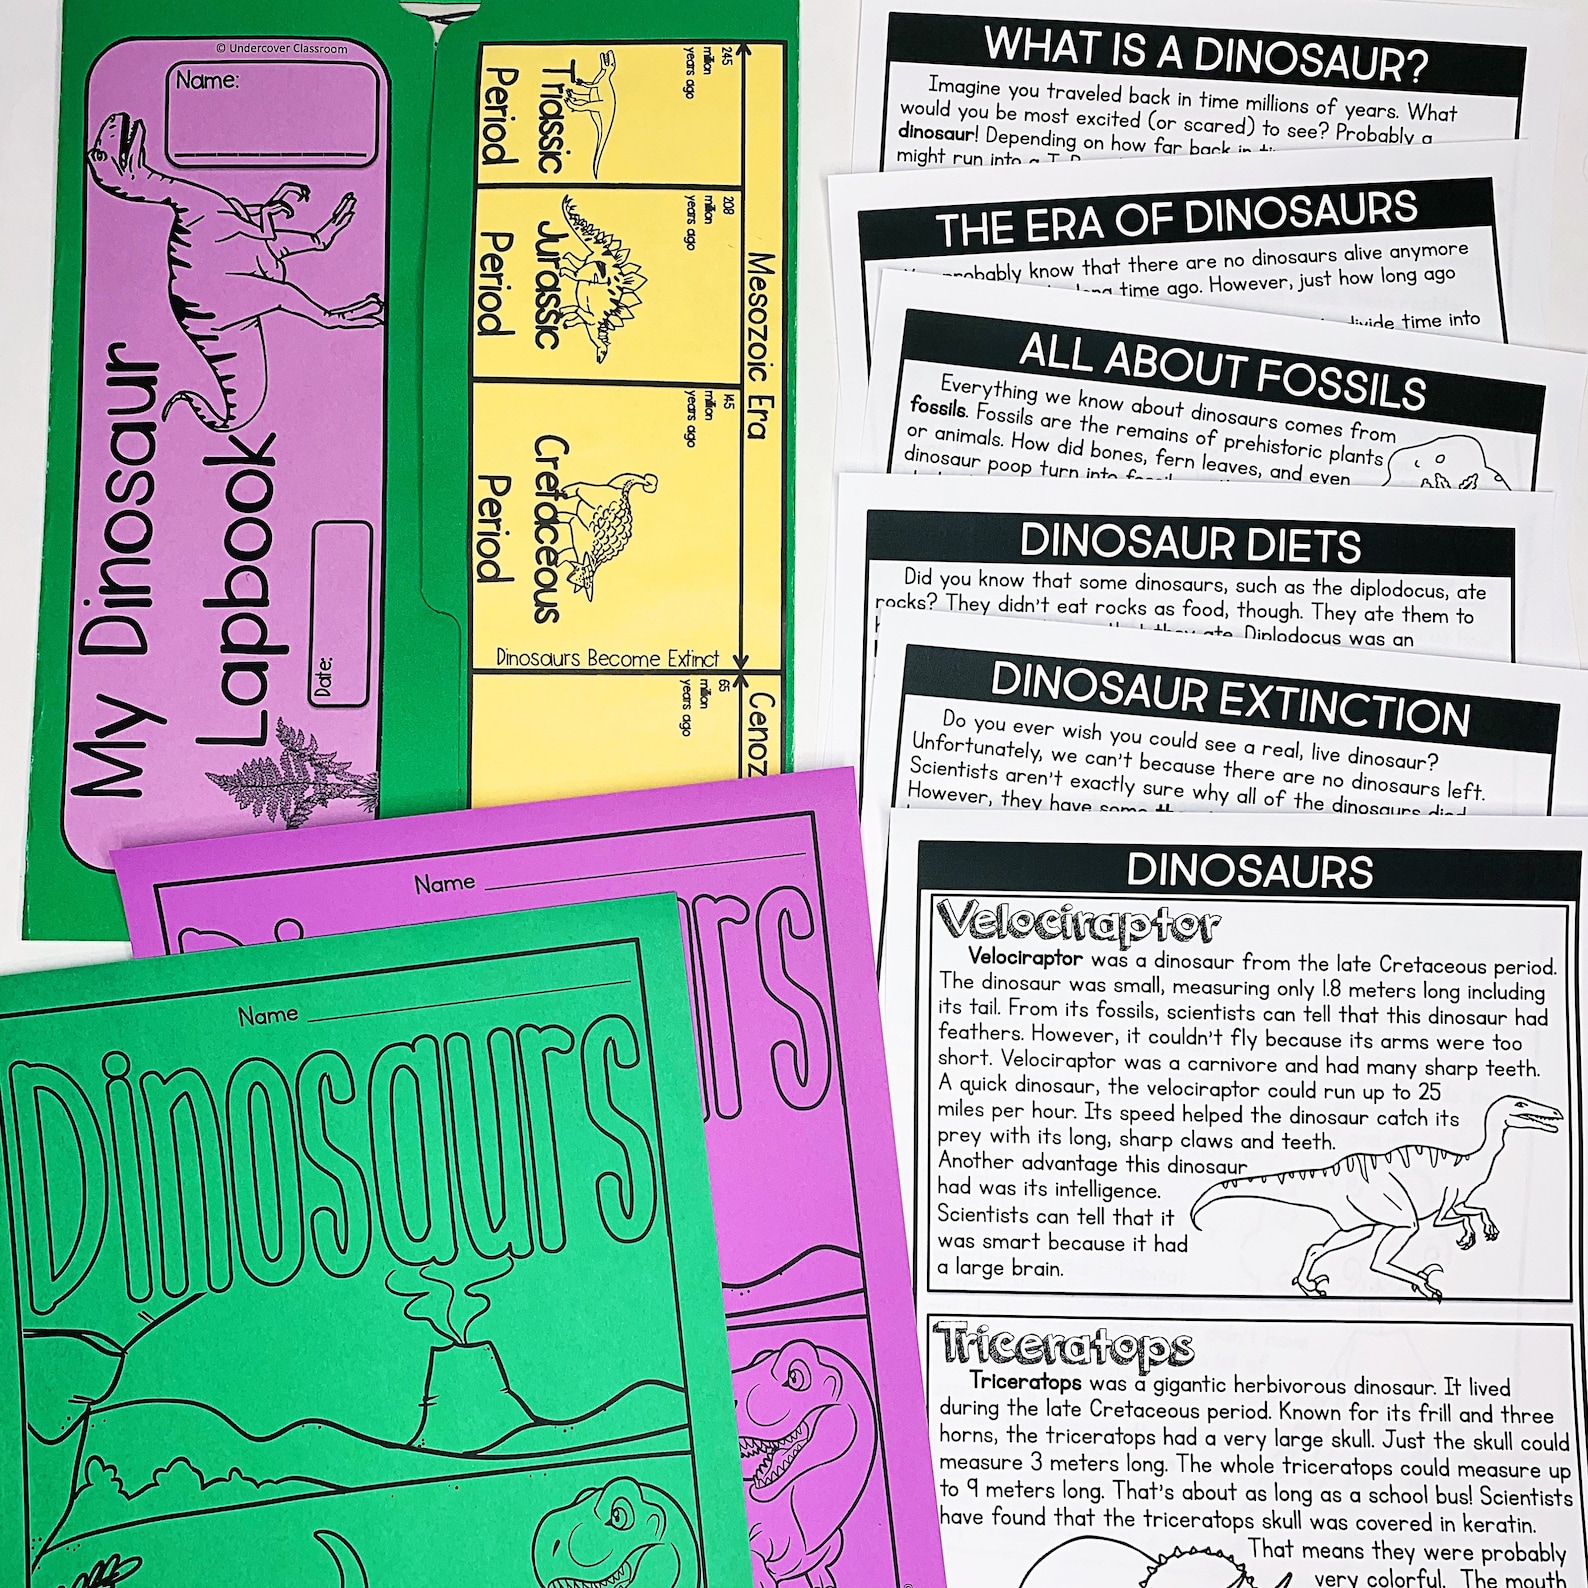 © Undercover Classroom
Name:
My Dinosaur
Lapbook
Date:
Mesozoic Era
245
million
years ago
Triassic
Period
208
million
years ago
Jurassic
Period
145
million
years ago
Cretaceous
Period
Dinosaurs Become Extinct
65
million
years ago
Cenoz
WHAT IS A DINOSAUR?
Imagine you traveled back in time millions of years. What
would you be most excited (or scared) to see? Probably a
dinosaur! Depending on how far back in
might run into a T.
THE ERA OF DINOSAURS
probably know that there are no dinosaurs alive anymore
time ago. However, just how long ago
divide time into
ALL ABOUT FOSSILS
Everything we know about dinosaurs comes from
fossils. Fossils are the remains of prehistoric plants
or animals. How did bones, fern leaves, and even
dinosaur poop turn into
DINOSAUR DIETS
Did you know that some dinosaurs, such as the diplodocus, ate
rocks? They didn't eat rocks as food, though. They ate them to
that they ate. Diplodocus was an
DINOSAUR EXTINCTION
Do you ever wish you could see a real, live dinosaur?
Unfortunately, we can't because there are no dinosaurs left.
Scientists aren't exactly sure why all of the dinosaurs died
However, they have some
DINOSAURS
Velociraptor
Velociraptor was a dinosaur from the late Cretaceous period.
The dinosaur was small, measuring only 1.8 meters long including
its tail. From its fossils, scientists can tell that this dinosaur had
feathers. However, it couldn't fly because its arms were too
short. Velociraptor was a carnivore and had many sharp teeth.
A quick dinosaur, the velociraptor could run up to 25
miles per hour. Its speed helped the dinosaur catch its
prey with its long, sharp claws and teeth.
Another advantage this dinosaur
had was its intelligence.
Scientists can tell that it
was smart because it had
a large brain.
Triceratops
Triceratops was a gigantic herbivorous dinosaur. It lived
during the late Cretaceous period. Known for its frill and three
horns, the triceratops had a very large skull. Just the skull could
measure 3 meters long. The whole triceratops could measure up
to 9 meters long. That's about as long as a school bus! Scientists
have found that the triceratops skull was covered in keratin.
That means they were probably
very colorful. The mouth
Name
Din
urs
Name
Dinosaurs